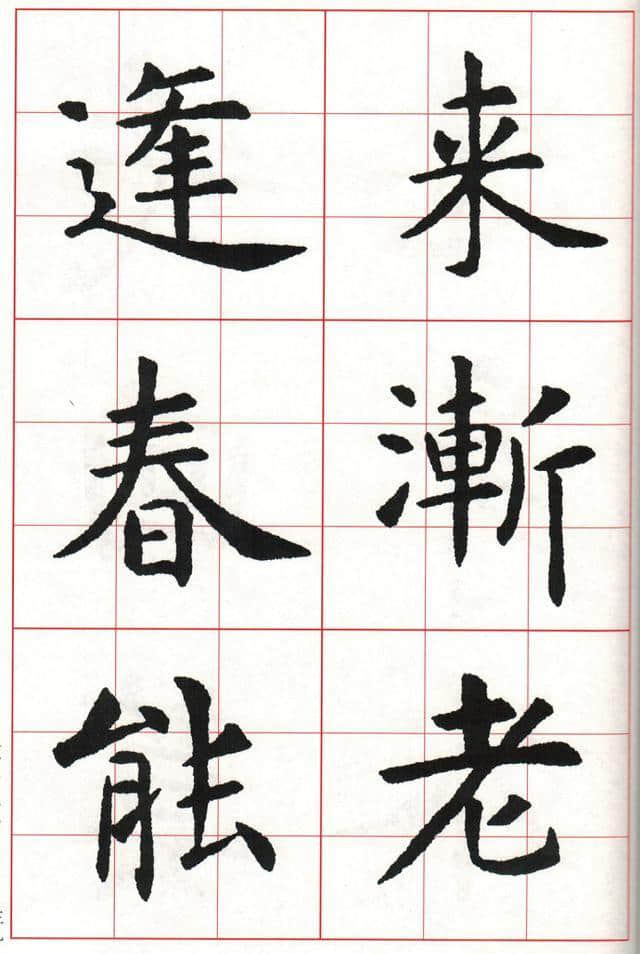 来漸老
逢春能